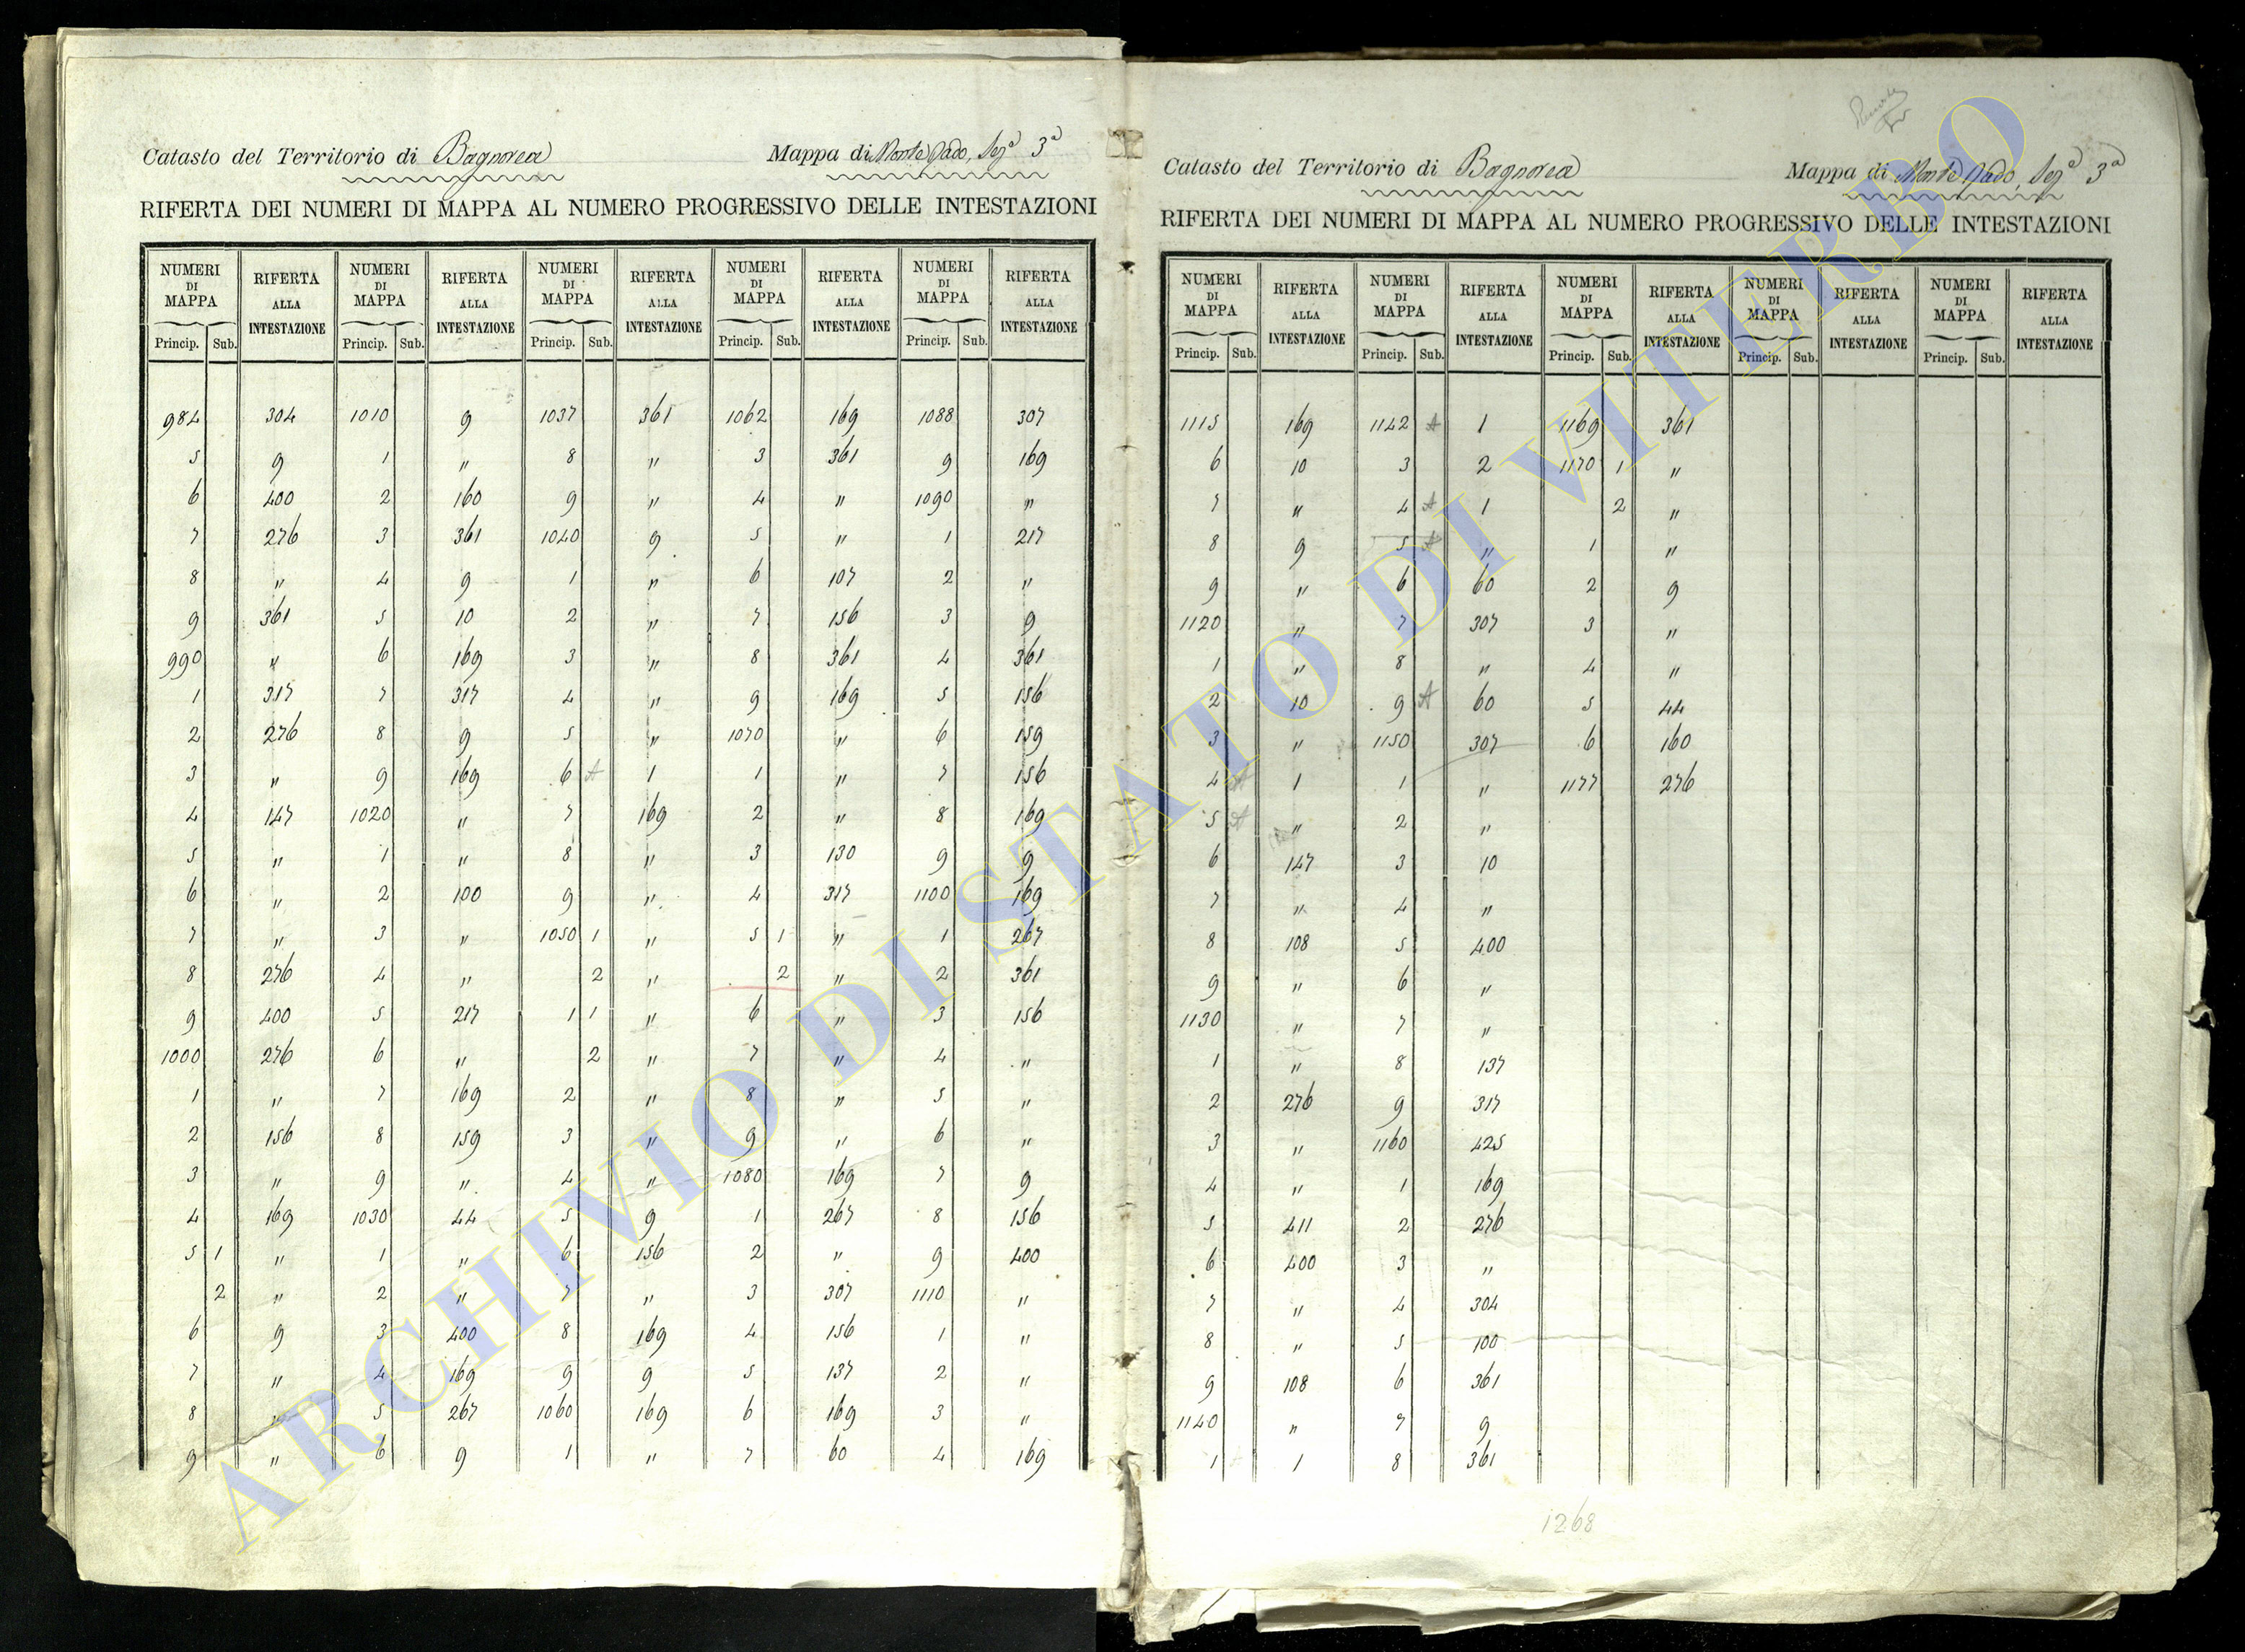 Catasto del Territorio di Bagnorea Mappa di Monte Jado, Sez.ª 3ª
RIFERTA DEI NUMERI DI MAPPA AL NUMERO PROGRESSIVO DELLE INTESTAZIONI
NUMERI DI MAPPA RIFERTA ALLA INTESTAZIONE NUMERI DI MAPPA RIFERTA ALLA INTESTAZIONE NUMERI DI MAPPA RIFERTA ALLA INTESTAZIONE NUMERI DI MAPPA RIFERTA ALLA INTESTAZIONE NUMERI DI MAPPA RIFERTA ALLA INTESTAZIONE
Princip. Sub. Princip. Sub. Princip. Sub. Princip. Sub. Princip. Sub.
984 304 1010 9 1037 361 1062 169 1088 307
5 9 1 " 8 " 3 361 9 169
6 400 2 160 9 " 4 " 1090 "
7 276 3 361 1040 9 5 " 1 217
8 " 4 9 1 " 6 107 2 "
9 361 5 10 2 " 7 156 3 9
990 " 6 169 3 " 8 361 4 361
1 317 7 317 4 " 9 169 5 156
2 276 8 9 5 " 1070 " 6 159
3 " 9 169 6 A 1 1 " 7 156
4 147 1020 " 7 169 2 " 8 169
5 " 1 " 8 " 3 130 9 9
6 " 2 100 9 " 4 317 1100 169
7 " 3 " 1050 1 " 5 1 " 1 267
8 276 4 " 2 " 2 " 2 361
9 400 5 217 1 1 " 6 " 3 156
1000 276 6 " 2 " 7 " 4 "
1 " 7 169 2 " 8 " 5 "
2 156 8 159 3 " 9 " 6 "
3 " 9 " 4 " 1080 169 7 9
4 169 1030 44 5 9 1 267 8 156
5 1 " 1 " 6 156 2 " 9 400
2 " 2 " 7 " 3 307 1110 "
6 9 3 400 8 169 4 156 1 "
7 " 4 169 9 9 5 137 2 "
8 " 5 267 1060 169 6 169 3 "
9 " 6 9 1 " 7 60 4 169
Catasto del Territorio di Bagnorea Mappa di Monte Jado, Sez.ª 3ª
RIFERTA DEI NUMERI DI MAPPA AL NUMERO PROGRESSIVO DELLE INTESTAZIONI
NUMERI DI MAPPA RIFERTA ALLA INTESTAZIONE NUMERI DI MAPPA RIFERTA ALLA INTESTAZIONE NUMERI DI MAPPA RIFERTA ALLA INTESTAZIONE NUMERI DI MAPPA RIFERTA ALLA INTESTAZIONE NUMERI DI MAPPA RIFERTA ALLA INTESTAZIONE
Princip. Sub. Princip. Sub. Princip. Sub. Princip. Sub. Princip. Sub.
1115 169 1142 A 1 1169 361
6 10 3 2 1170 1 "
7 " 4 A 1 2 "
8 9 5 A " 1 "
9 " 6 60 2 9
1120 " 7 307 3 "
1 " 8 " 4 "
2 10 9 A 60 5 44
3 " 1150 307 6 160
4 A 1 1 " 1177 276
5 A " 2 "
6 147 3 10
7 " 4 "
8 108 5 400
9 " 6 "
1130 " 7 "
1 " 8 137
2 276 9 317
3 " 1160 425
4 " 1 169
5 411 2 276
6 400 3 "
7 " 4 304
8 " 5 100
9 108 6 361
1140 " 7 9
1 1 8 361
1268
ARCHIVIO DI STATO DI VITERBO